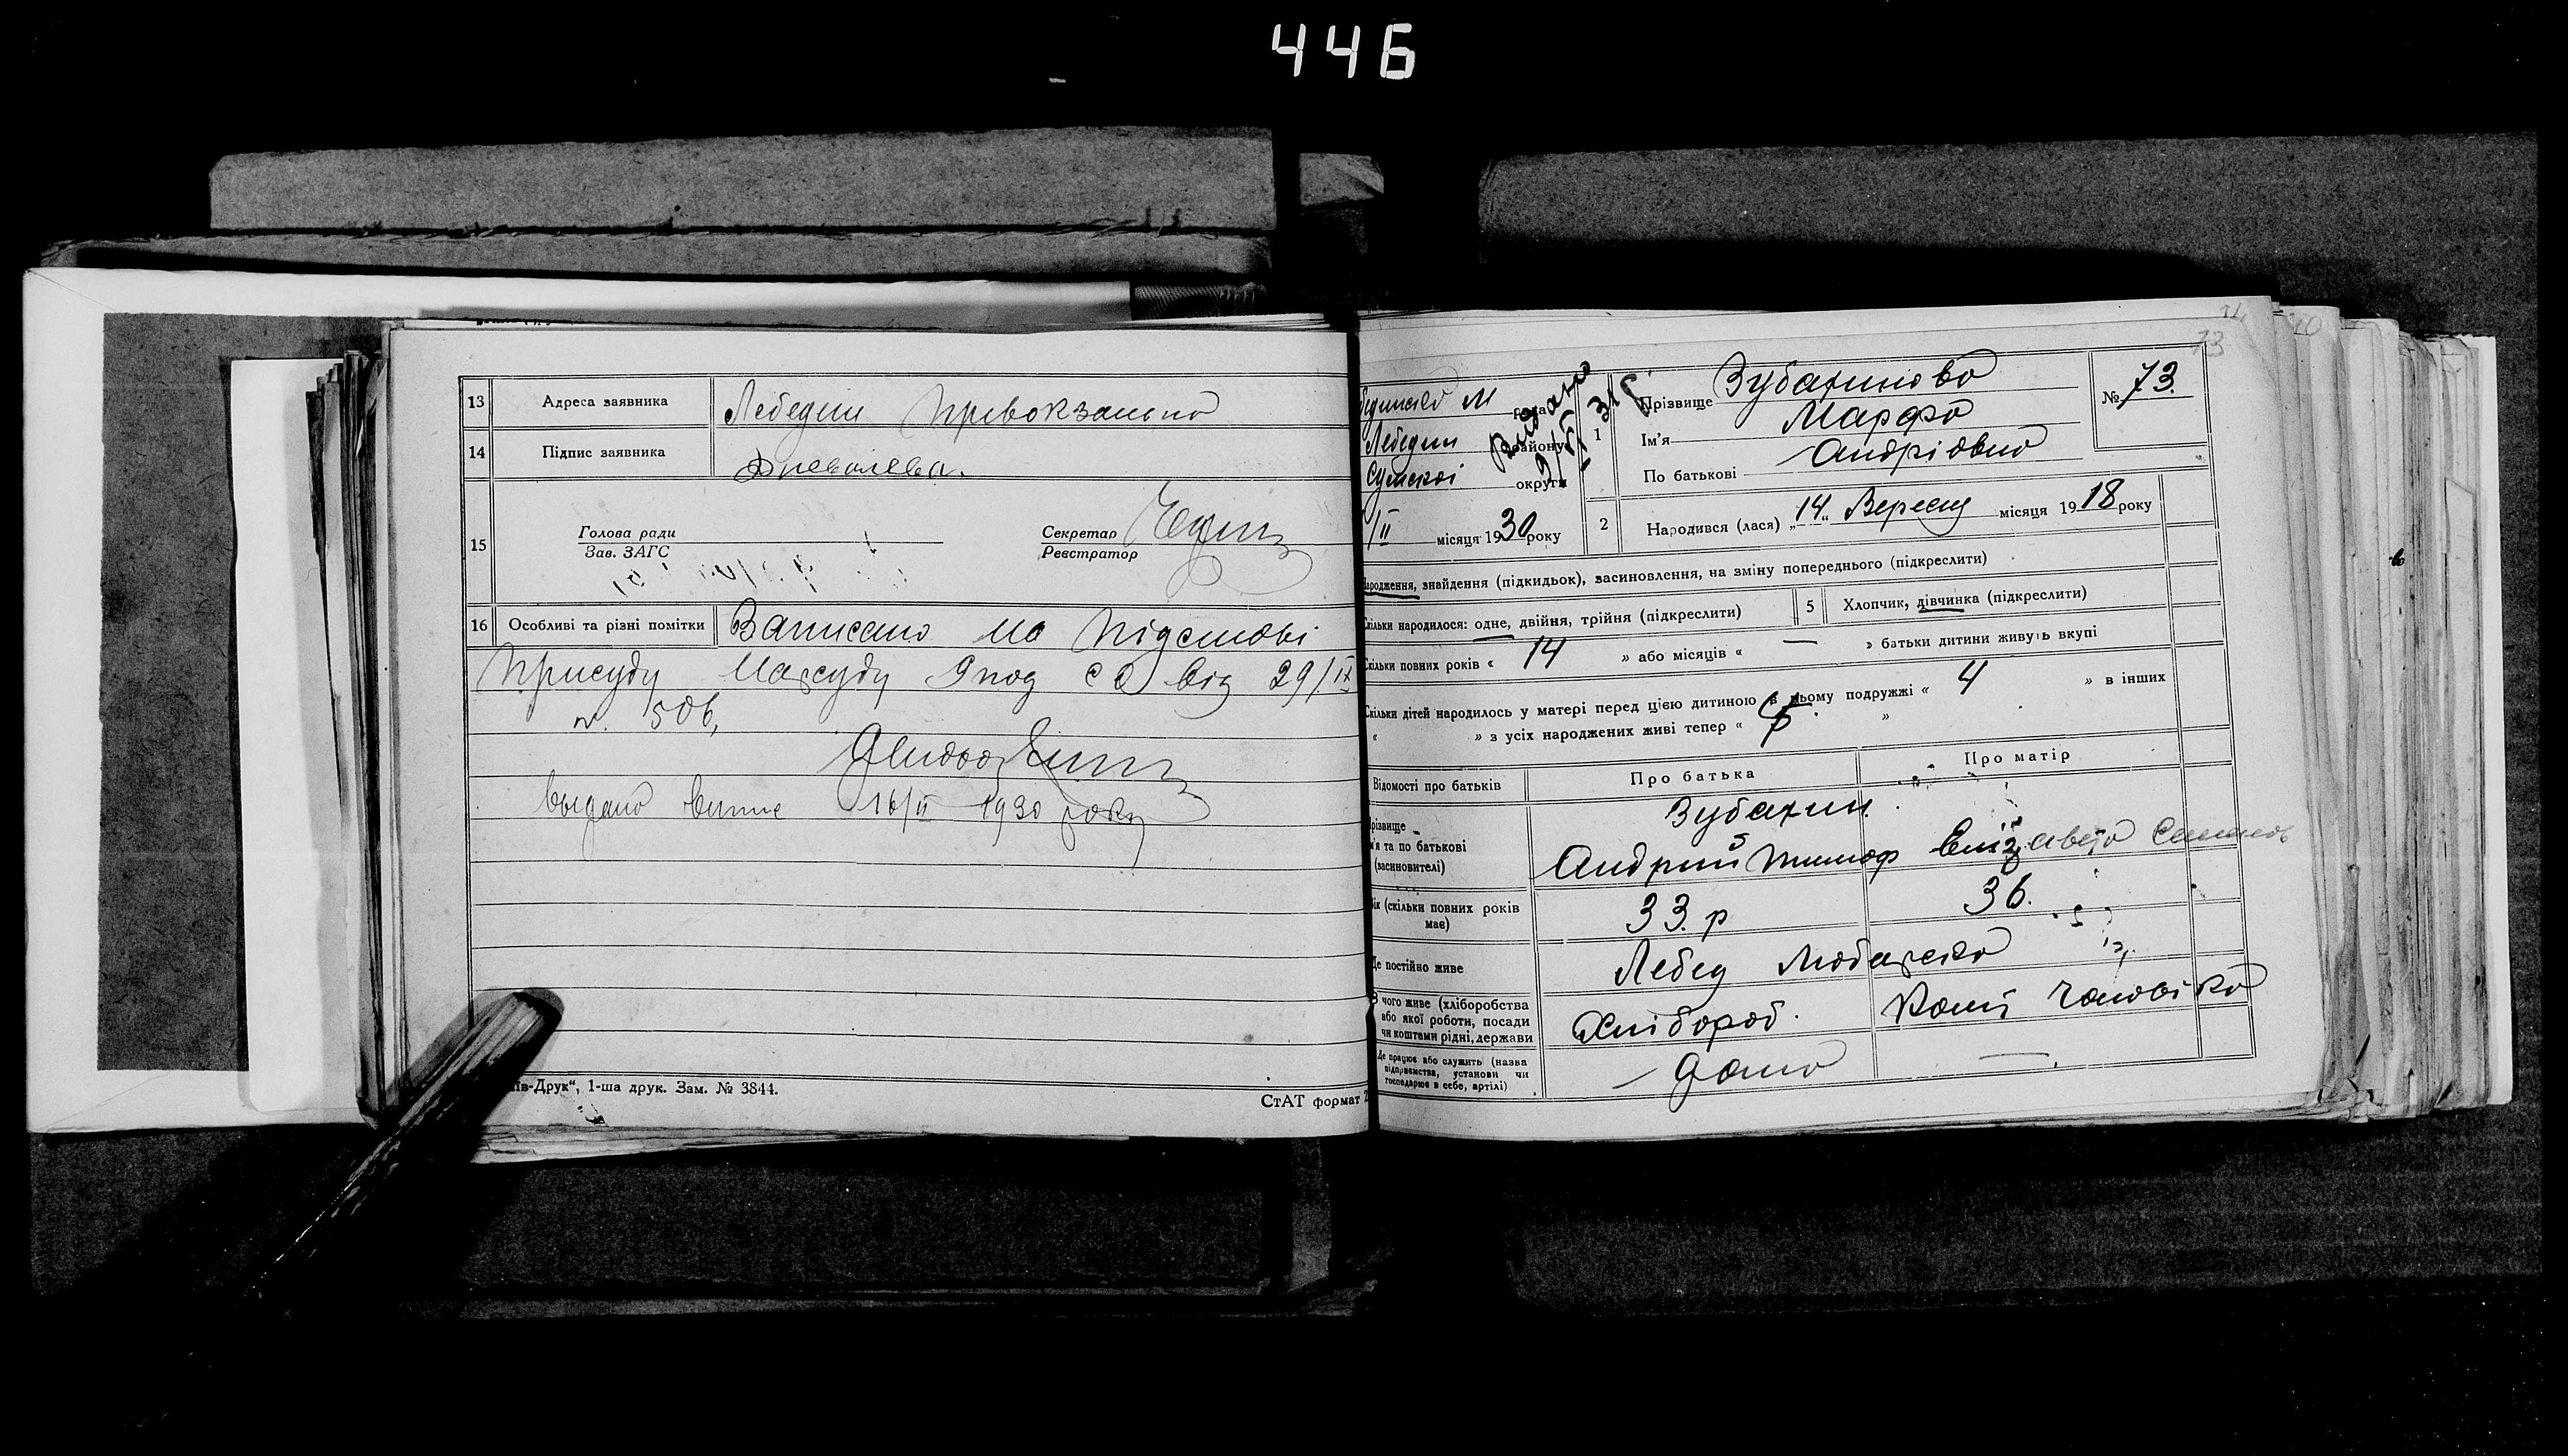 446
13 Адреса заявника Лебедин Привокзальна
14 Підпис заявника
15 Голова ради Секретар
Зав. ЗАГС Реєстратор
16 Особливі та різні помітки Записано на підставі
присуду Нарсуду від 29/IX
506,
Выдано випис 16/II 1930 року
1-ша друк. Зам. № 3844.
СтАТ формат
73
М ради
Лебедин району
Сумскої округи
/II місяця 1930 року
Видано
1 Прізвище Зубахинова
Ім'я Марфа
По батькові Андріовна
№ 73.
2 Народився (лася) „14„ Вересня місяця 1918 року
народження, знайдення (підкидьок), засиновлення, на зміну попереднього (підкреслити)
Скільки народилося: одне, двійня, трійня (підкреслити) 5 Хлопчик, дівчинка (підкреслити)
Скільки повних років « 14 » або місяців « — » батьки дитини живуть вкупі
Скільки дітей народилось у матері перед цією дитиною в цьому подружжі « 4 » в інших
« » з усіх народжених живі тепер « »
Відомості про батьків Про батька Про матір
Прізвище Ім'я та по батькові (засиновителі)
Зубахин.
Андрий Тимоф Єлізавета
Вік (скільки повних років має) 33 р 36.
Де постійно живе Лебед
З чого живе (хліборобства
або якої роботи, посади
чи коштами рідні, держави
Хлібороб. Кошт. чоловіка
Де працює або служить (назва
підприємства, установи чи
господарює в себе, артілі)
— дома —